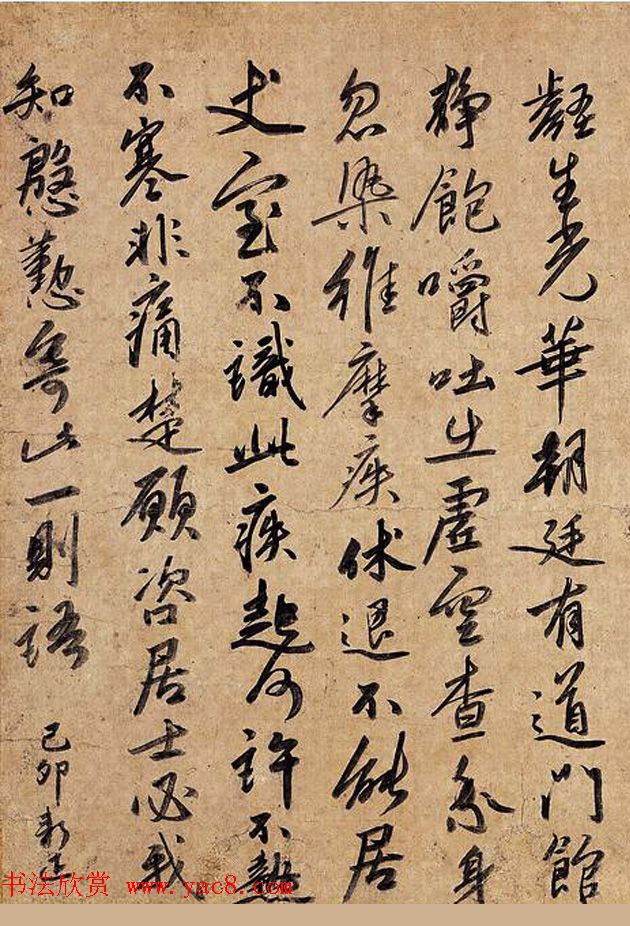 生光華朝廷有道門館
静飽嚼生虛空查身
忽染維摩疾休退不能居
丈室不識此疾起何許不熱
不寒非痛楚願咨居士必我
知慇懃寄此一則語
己卯新正
书法欣赏 www.yac8.com